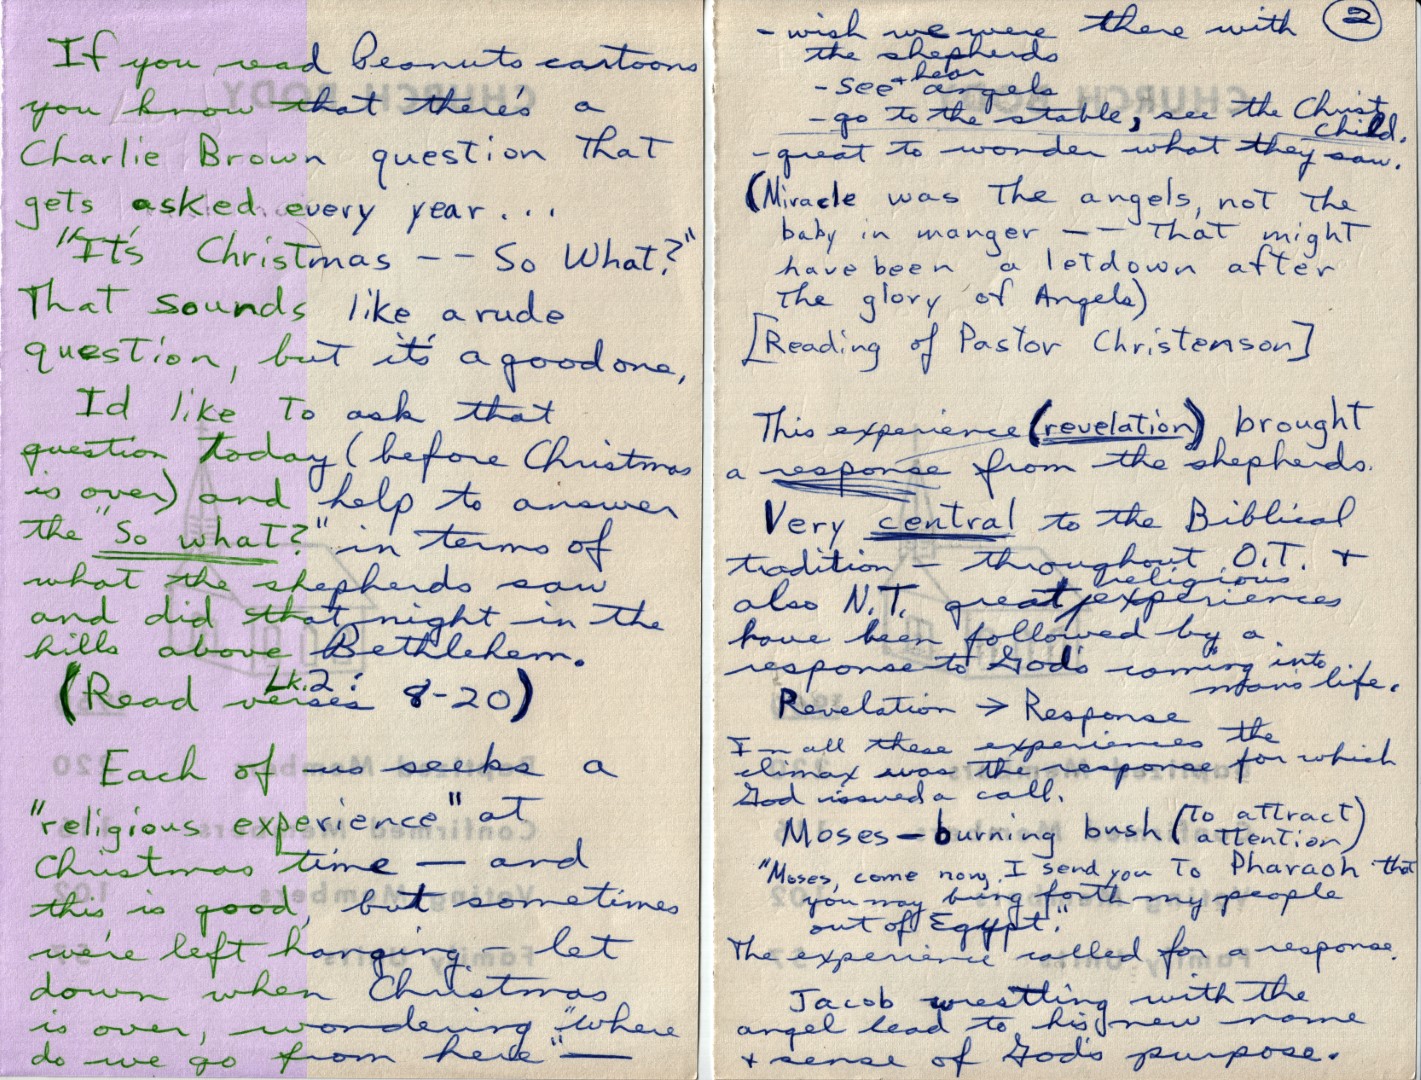 If you read Peanuts cartoons
you know that there's a
Charlie Brown question that
gets asked every year...
"It's Christmas -- So What?"
That sounds like a rude
question, but it's a good one,
I'd like to ask that
question today (before Christmas
is over) and help to answer
the "So what?" in terms of
what the shepherds saw
and did that night in the
hills above Bethlehem.
(Read Lk. 2: verses 8-20)
Each of us seeks a
"religious experience" at
Christmas time — and
this is good, but sometimes
we're left hanging - let
down when Christmas
is over, wondering "where
do we go from here" —
2
- wish we were there with
the shepherds
- see + hear angels
- go to the stable, see the Christ
child.
- great to wonder what they saw.
(Miracle was the angels, not the
baby in manger -- that might
have been a letdown after
the glory of Angels)
[Reading of Pastor Christenson]
This experience (revelation) brought
a response from the shepherds.
Very central to the Biblical
tradition - throughout O.T. +
also N.T. great religious experiences
have been followed by a
response to God's coming into
man's life.
Revelation → Response
In all these experiences the
climax was the response for which
God issued a call.
Moses - burning bush (to attract
attention)
"Moses, come now, I send you to Pharaoh that
you may bring forth my people
out of Egypt."
The experience called for a response.
Jacob wrestling with the
angel lead to his new name
+ sense of God's purpose.
CHURCH BODY
CHURCH BODY
Baptized Members 220
Confirmed Members
Voting Members 102
Family Units 57
Baptized Members
Confirmed Members
Voting Members 102
Family Units